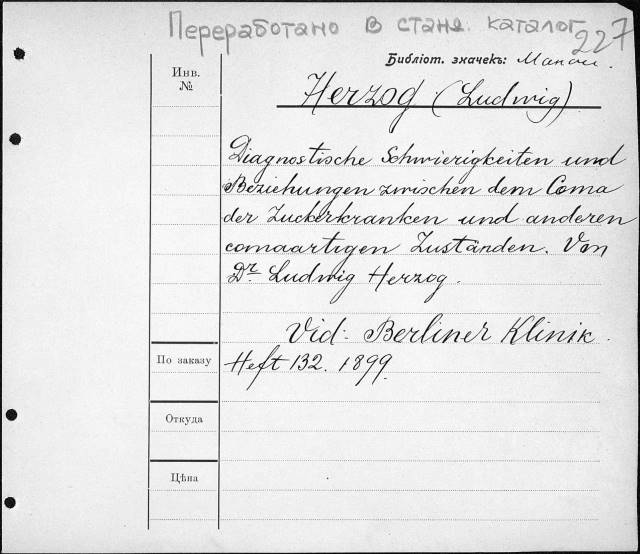 Переработано в станд. каталог
227
Библіот. значекъ:
Инв.
№
Herzog (Ludwig)
Diagnostische Schwierigkeiten und
Beziehungen zwischen dem Coma
der Zuckerkranken und anderen
comaartigen Zuständen. Von
Dr. Ludwig Herzog.
Vid: Berliner Klinik.
По заказу
Heft 132. 1899.
Откуда
Цѣна